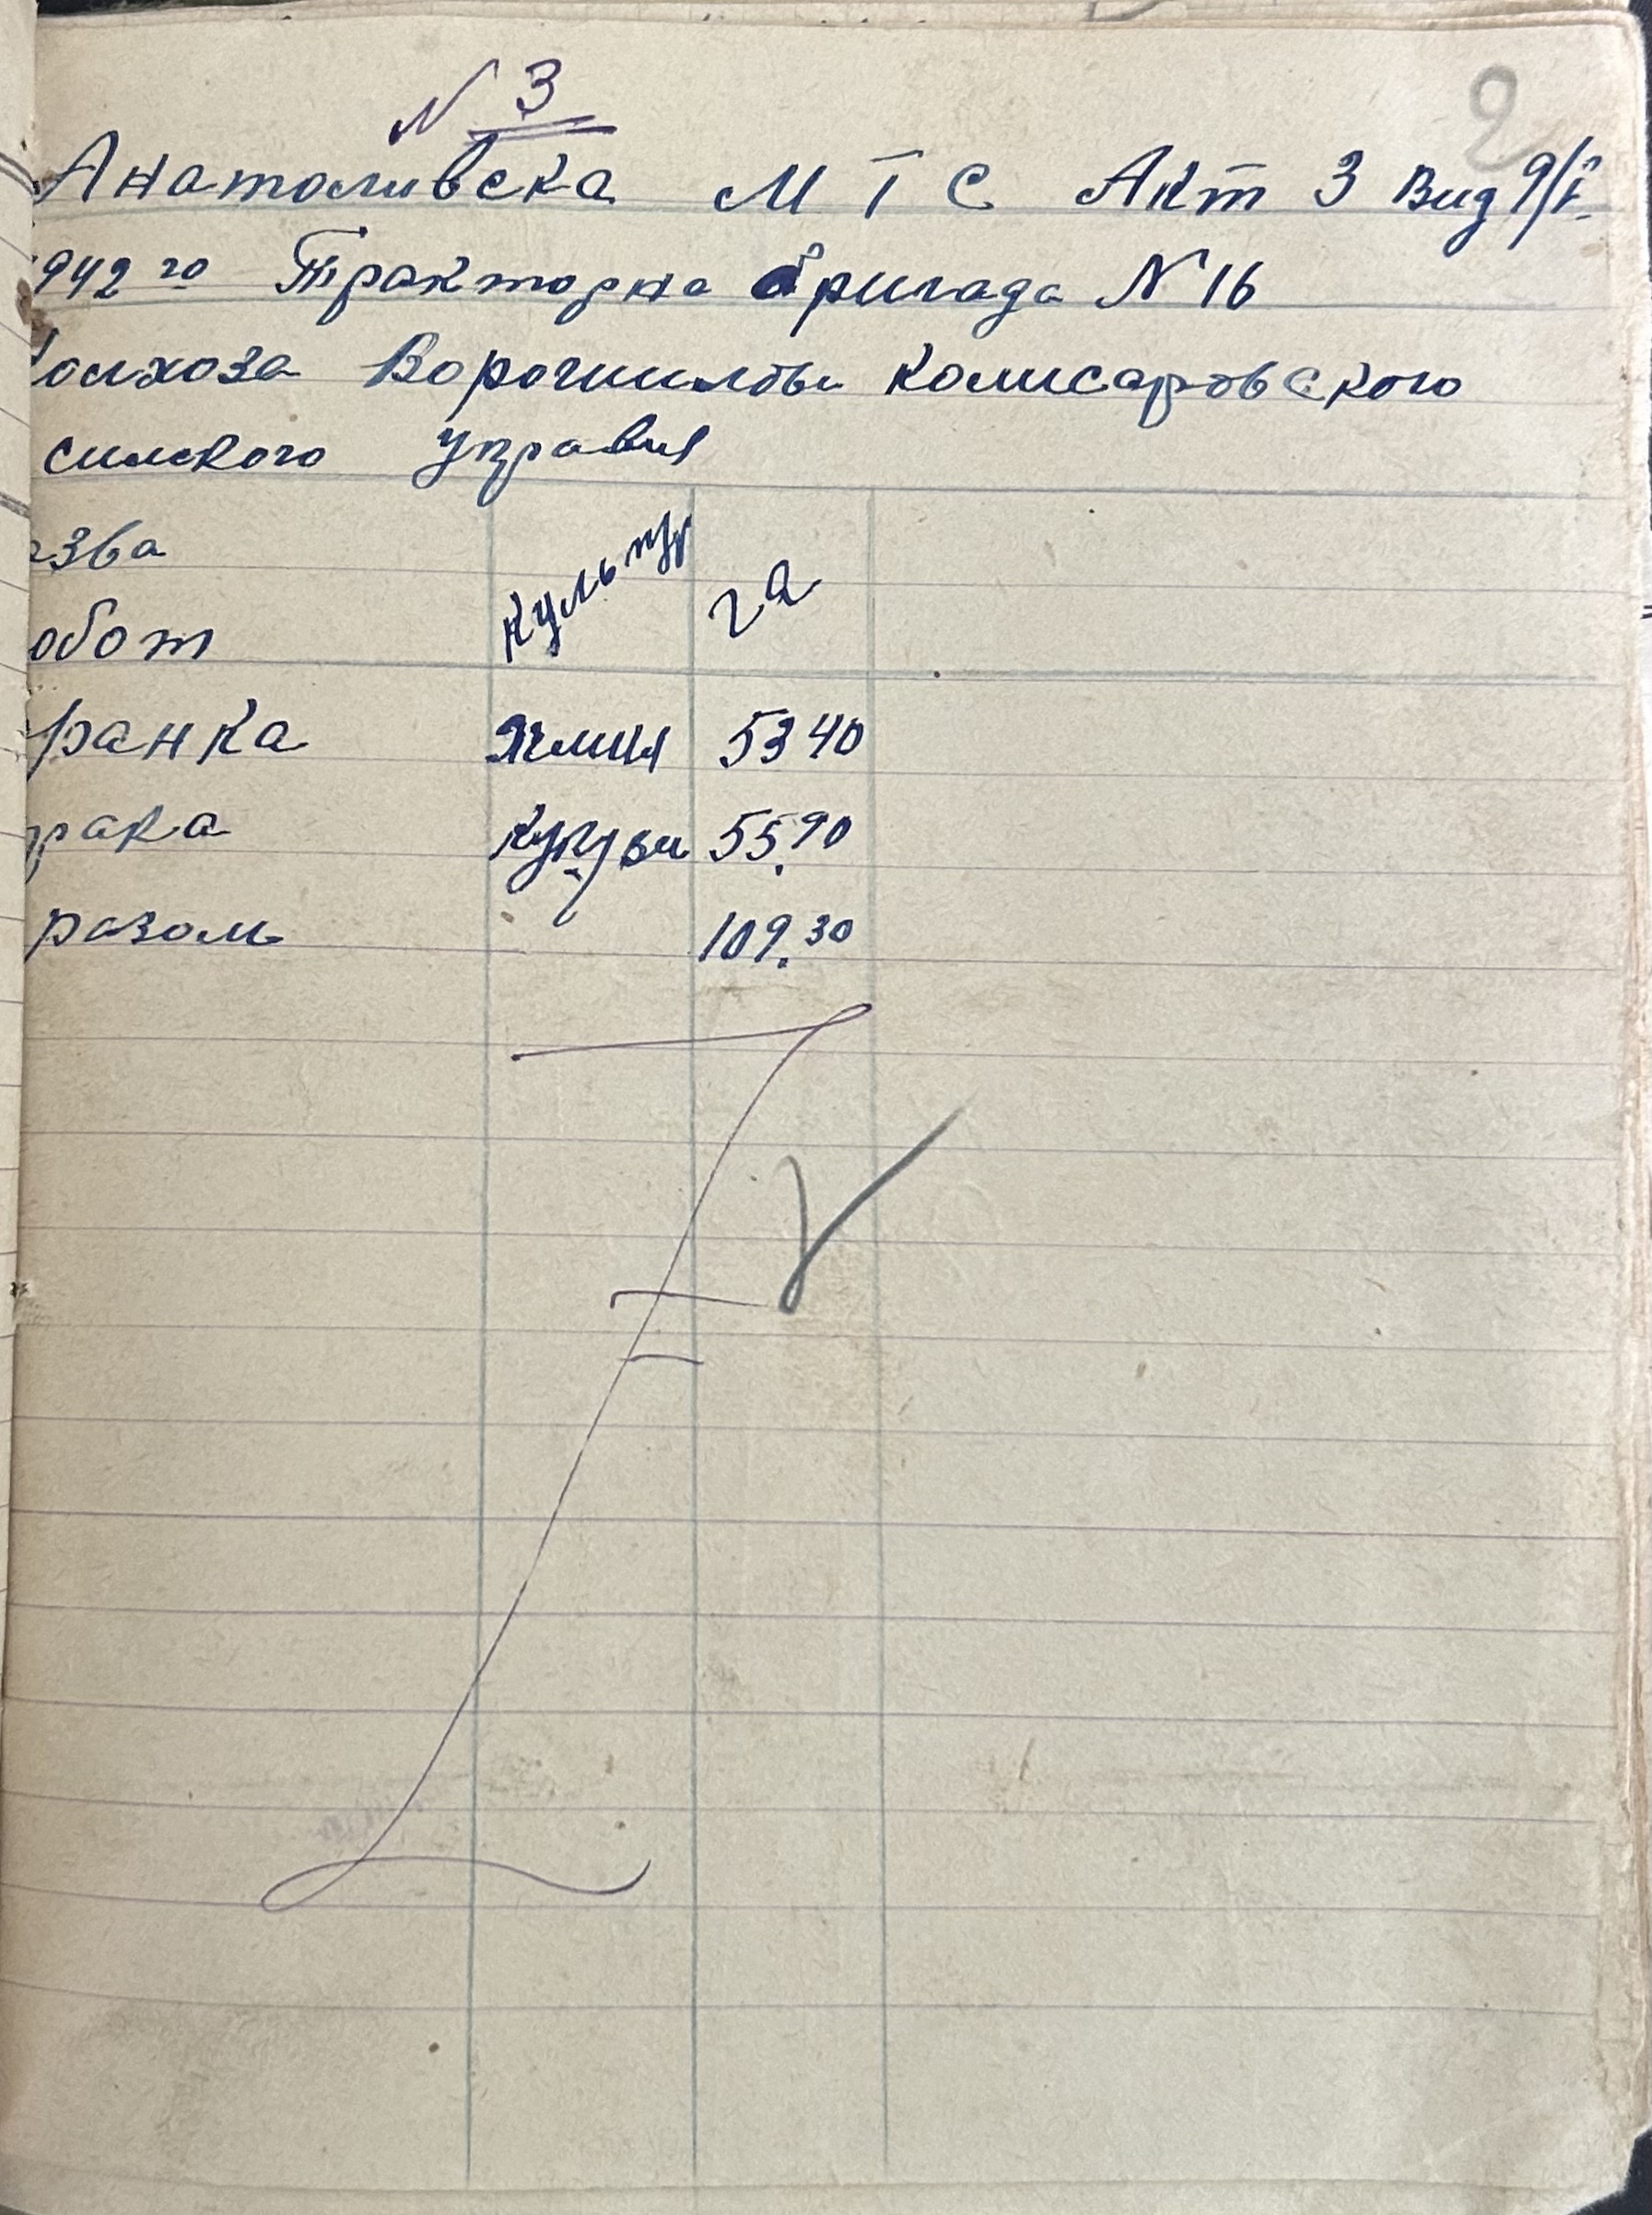 N 3
2
Анатоливска М Т С Акт 3 Вид 9/V
942 го Тракторна бригада N 16
олхоза Ворошиловы комисаровского
силского управи
зва
обот
Культур
га
ранка Ячминя 53 40
рака Кукузи 55.90
разом 109.30